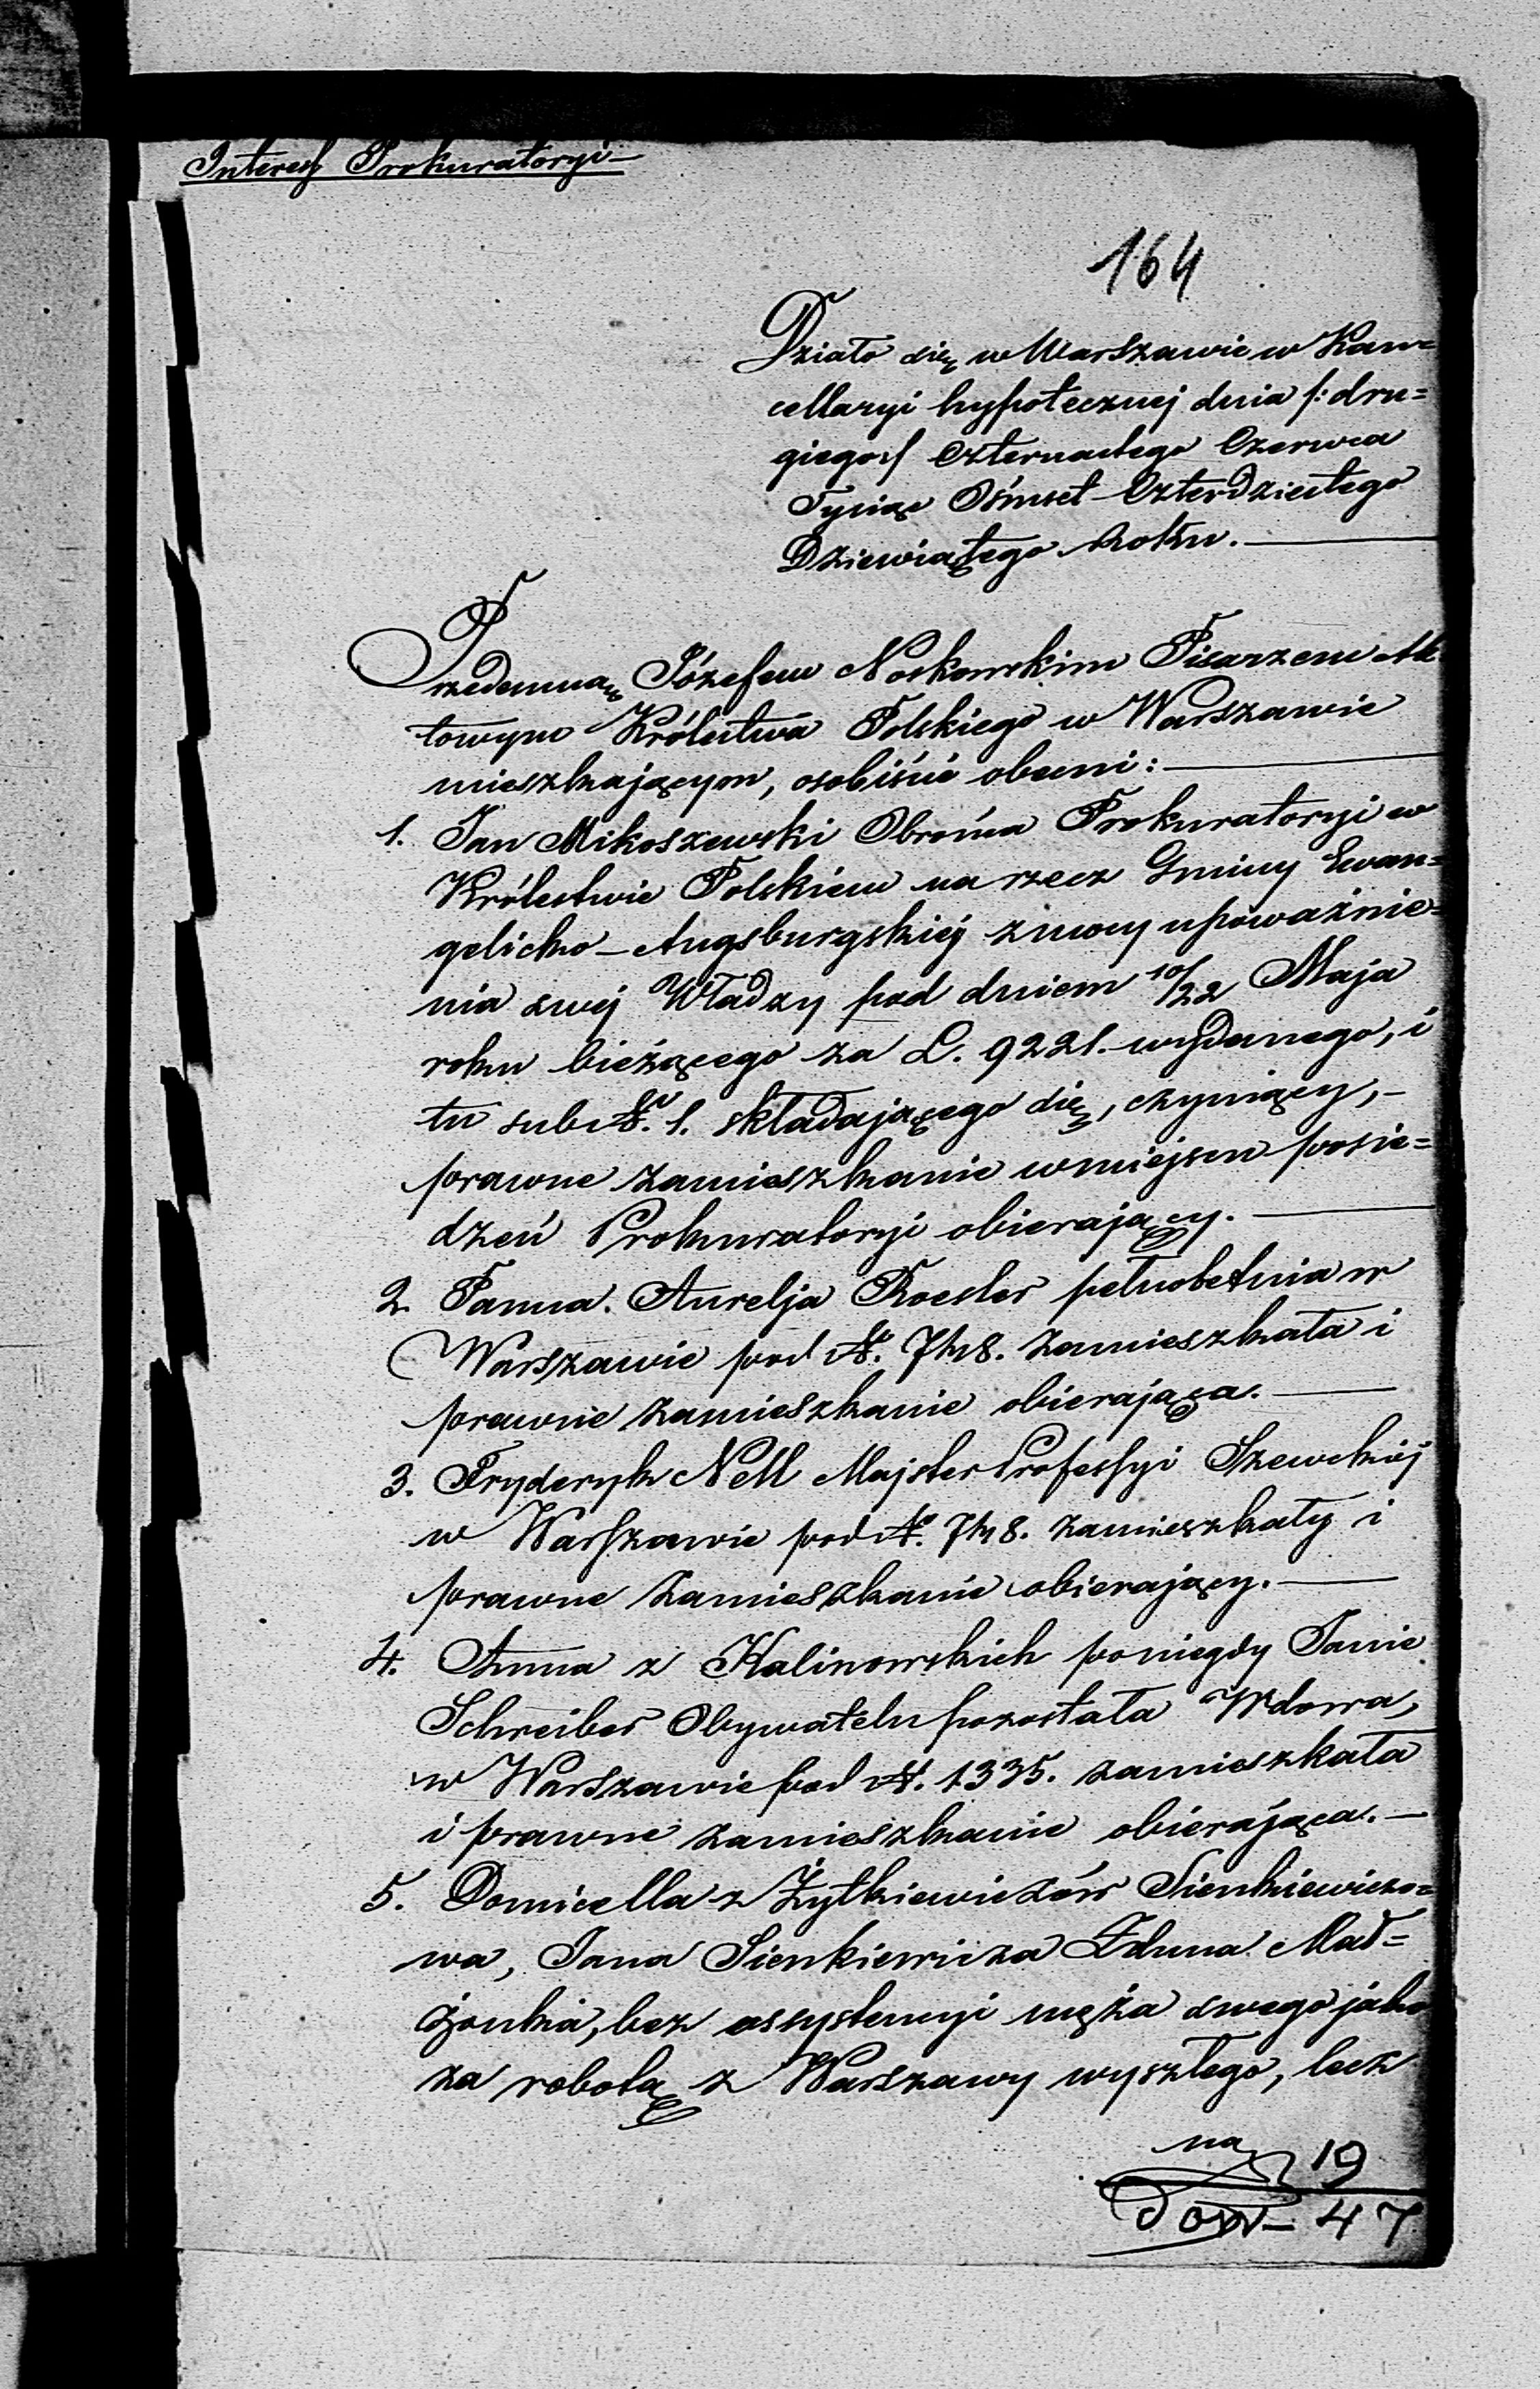 Interess Prokuratoryi
164
Działo się w Warszawie w Kan=
cellaryi hypotecznej dnia /:dru=
giego/ Czternastego Czerwca
Tysiąc Ośmset Czterdziestego
Dziewiątego Roku.
Przedemną Józefem Noskowskim Pisarzem Ak
towym Królestwa Polskiego w Warszawie
mieszkającym, osobiście obecni:
1. Jan Mikoszewski Obrońca Prokuratoryi w
Królestwie Polskiem na rzecz Gminy Ewan=
gelicko-Augsburgskiéj z mocy upoważnie=
nia swéj Władzy pod dniem 10/22 Maja
roku bieżącego za L. 9221. wydanego, i
tu sub No. 1. składającego się, czyniący,-
prawne zamieszkanie w miejscu posie=
dzeń Prokuratoryi obierający.
2. Panna Aurelja Roesler pełnoletnia w
Warszawie pod No. 748. zamieszkała i
prawne zamieszkanie obierająca.
3. Fryderyk Nell Majster Professyi Szewckiéj
w Warszawie pod No. 748. zamieszkały i
prawne zamieszkanie obierający.
4. Anna z Kalinowskich po niegdy Janie
Schreiber Obywatelu pozostała Wdowa,
w Warszawie pod N. 1335. zamieszkała
i prawne zamieszkanie obierająca.-
5. Domicella z Żytkiewiczów Sienkiewiczo=
wa, Jana Sienkiewicza Zduna Mał=
żonka, bez assystencyi męża swego jako
za robotą z Warszawy wyszłego, lecz
na
19
47